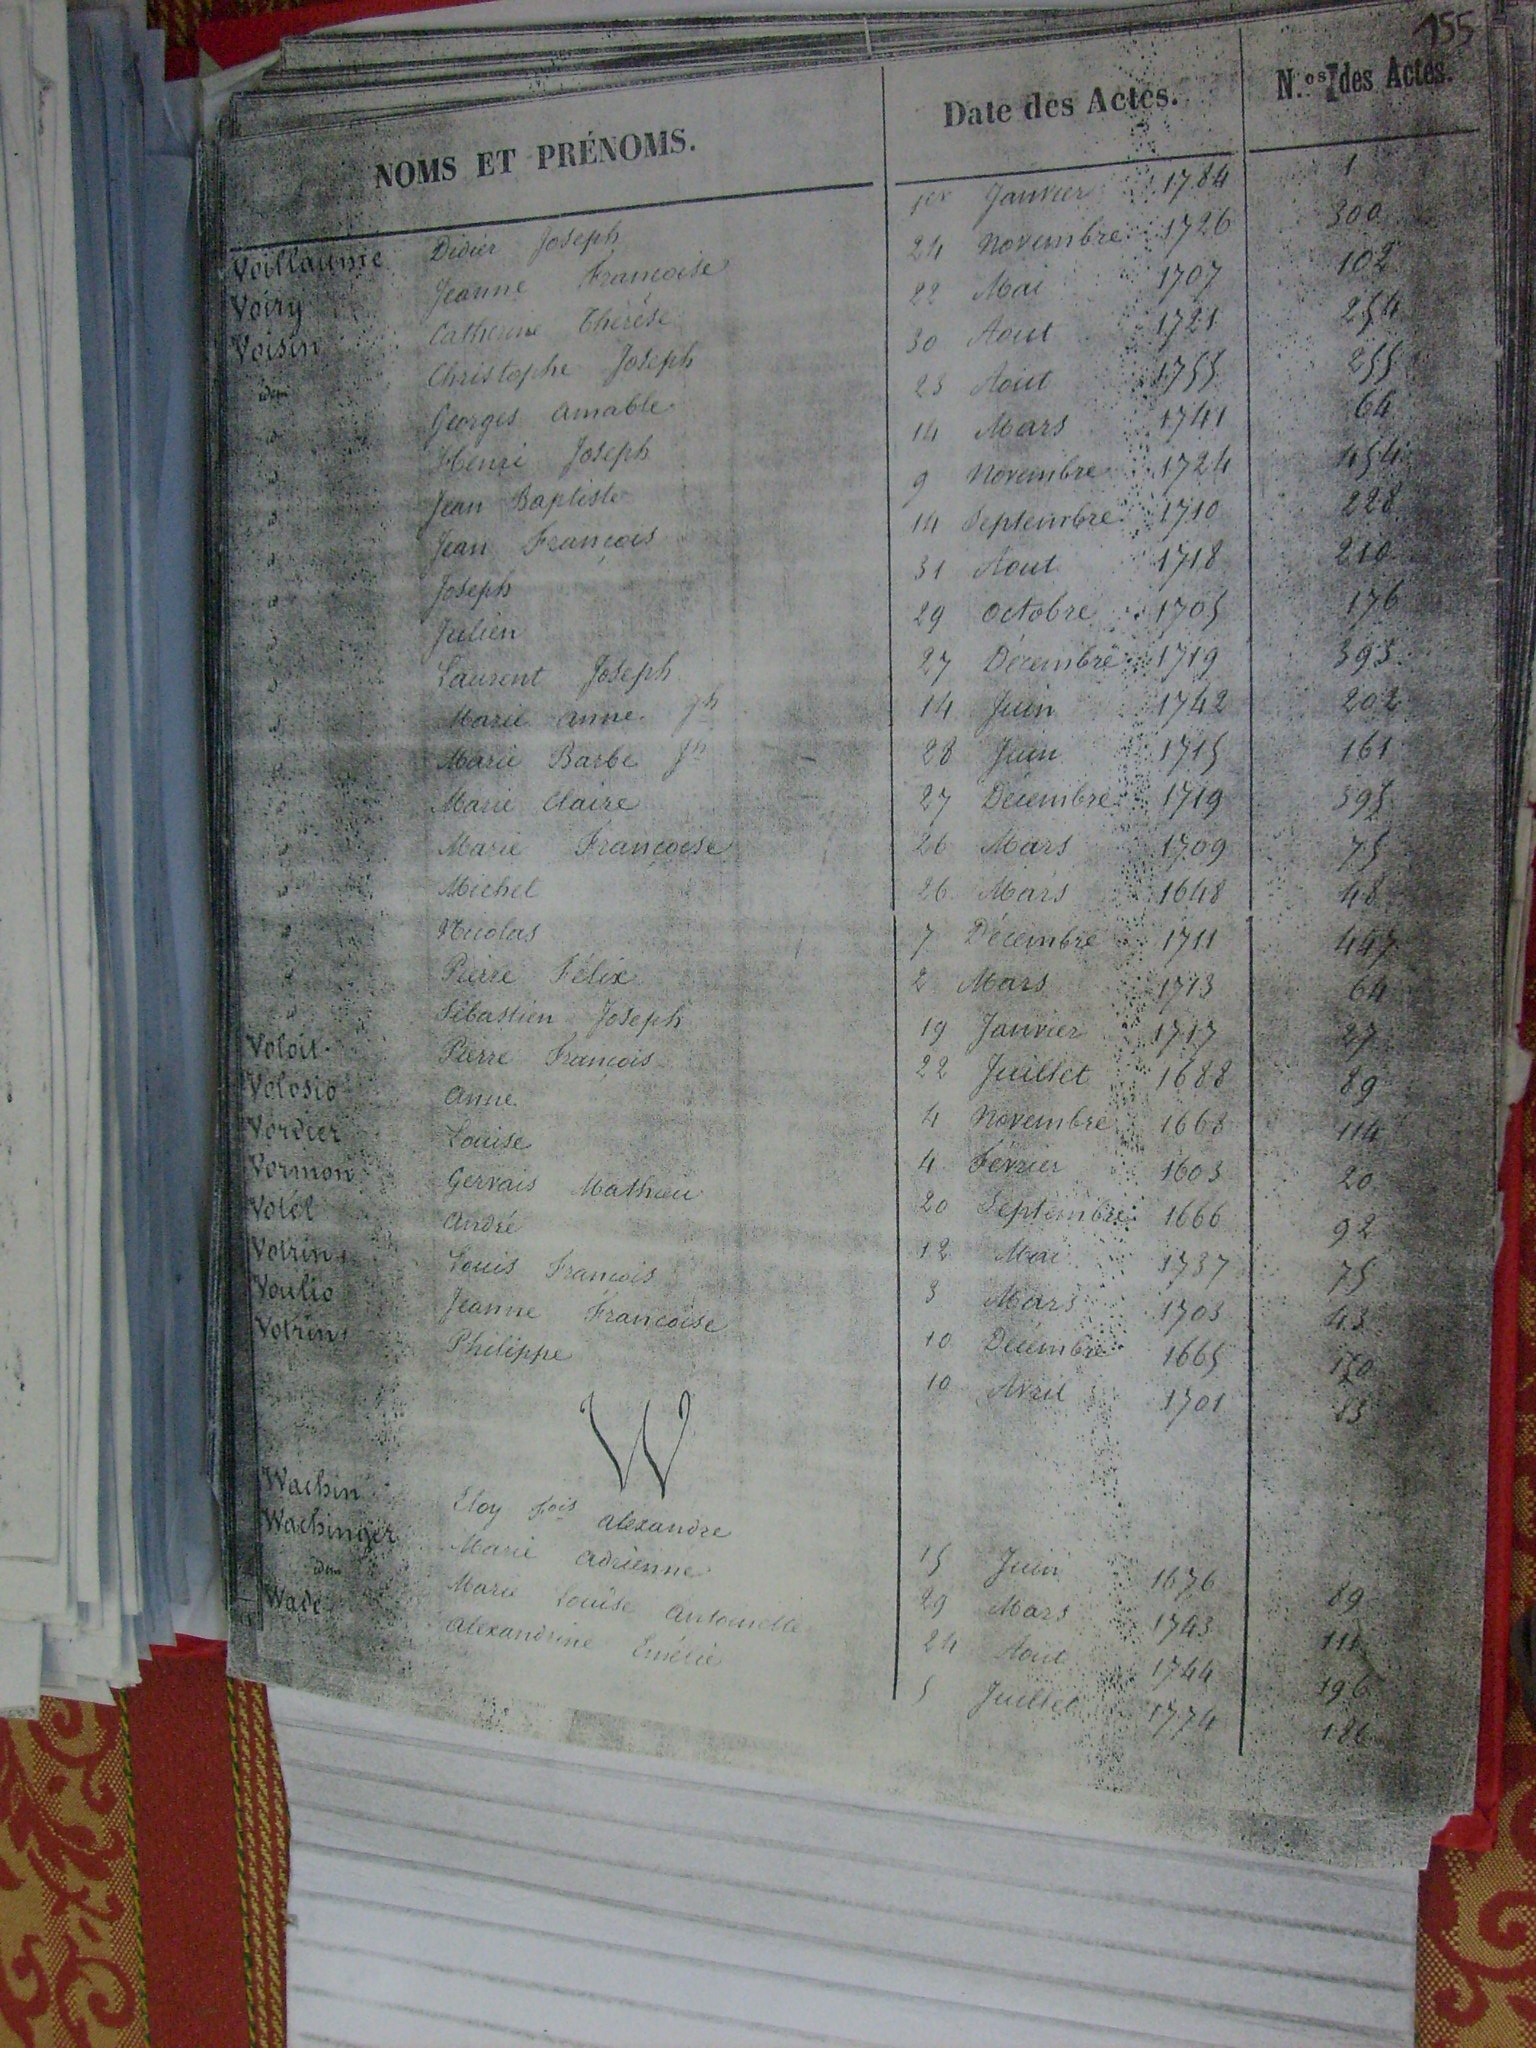 155
NOMS ET PRÉNOMS. Date des Actes. N.os des Actes.
Voillaume Didier Joseph 1er Janvier 1784 1
Voiry Jeanne Françoise 24 Novembre 1726 300
Voisin Catherine Thérèse 22 Mai 1707 102
idem Christophe Joseph 30 Aout 1721 254
id Georges Amable 23 Aout 1755 255
id Henri Joseph 14 Mars 1741 64
id Jean Baptiste 9 Novembre 1724 454
id Jean François 14 Septembre 1710 228
id Joseph 31 Aout 1718 210
id Julien 29 Octobre 1705 176
id Laurent Joseph 27 Décembre 1719 393
id Marie Anne Jh 14 Juin 1742 202
id Marie Barbe Jh 28 Juin 1715 161
id Marie Claire 27 Décembre 1719 395
id Marie Françoise 26 Mars 1709 75
id Michel 26 Mars 1648 48
id Nicolas 7 Décembre 1711 447
id Pierre Félix 2 Mars 1713 64
id Sébastien Joseph 19 Janvier 1717 27
Voloit Pierre François 22 Juillet 1688 89
Volosio Anne 4 Novembre 1668 114
Vordier Louise 4 Février 1603 20
Vormon Gervais Mathieu 20 Septembre 1666 92
Votel André 12 Mai 1737 75
Votrin Louis François 3 Mars 1703 43
Voulio Jeanne Françoise 10 Décembre 1665
Votrin Philippe 10 Avril 1701 83
W
Wachin Eloy fois Alexandre 15 Juin 1676 89
Wachinger Marie Adrienne 29 Mars 1743 111
idem Marie Louise Antoinette 24 Aout 1744 196
Wade Alexandrine Emélie 5 Juillet 1774 186